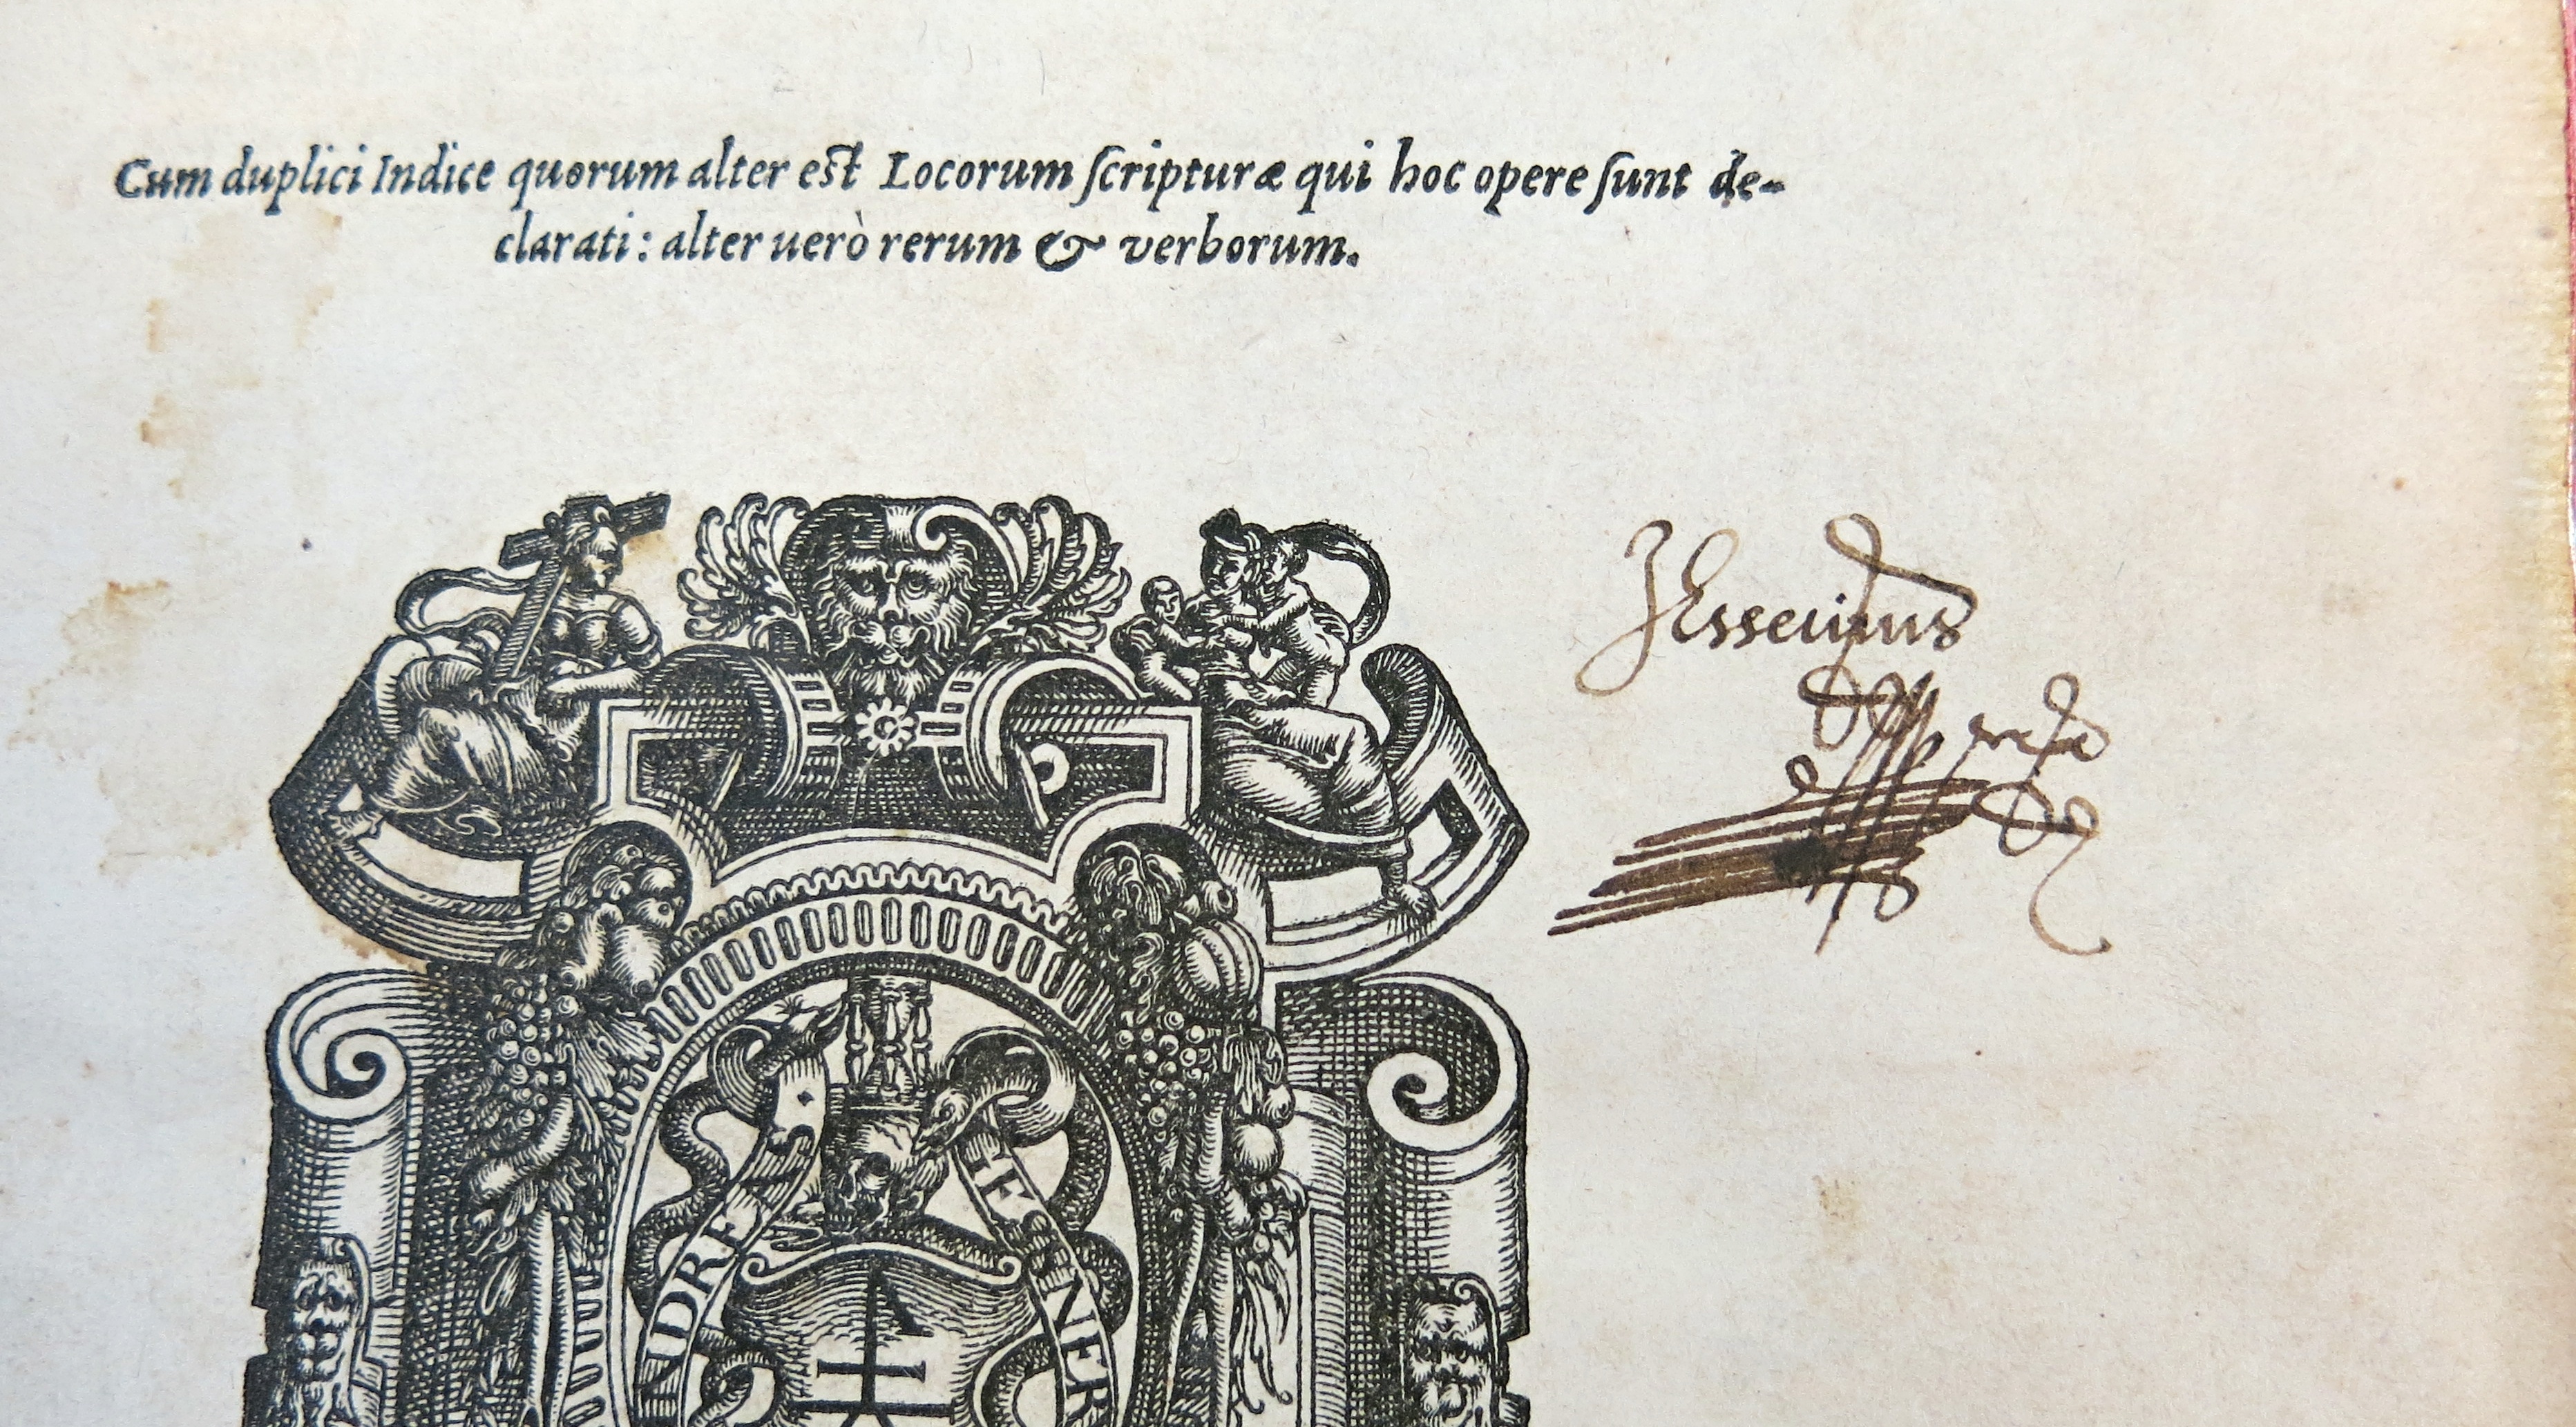 Cum duplici Indice quorum alter est Locorum ſcripturæ qui hoc opere ſunt de-
clarati: alter uerò rerum & verborum.
NDRE AS
TE, S, NER